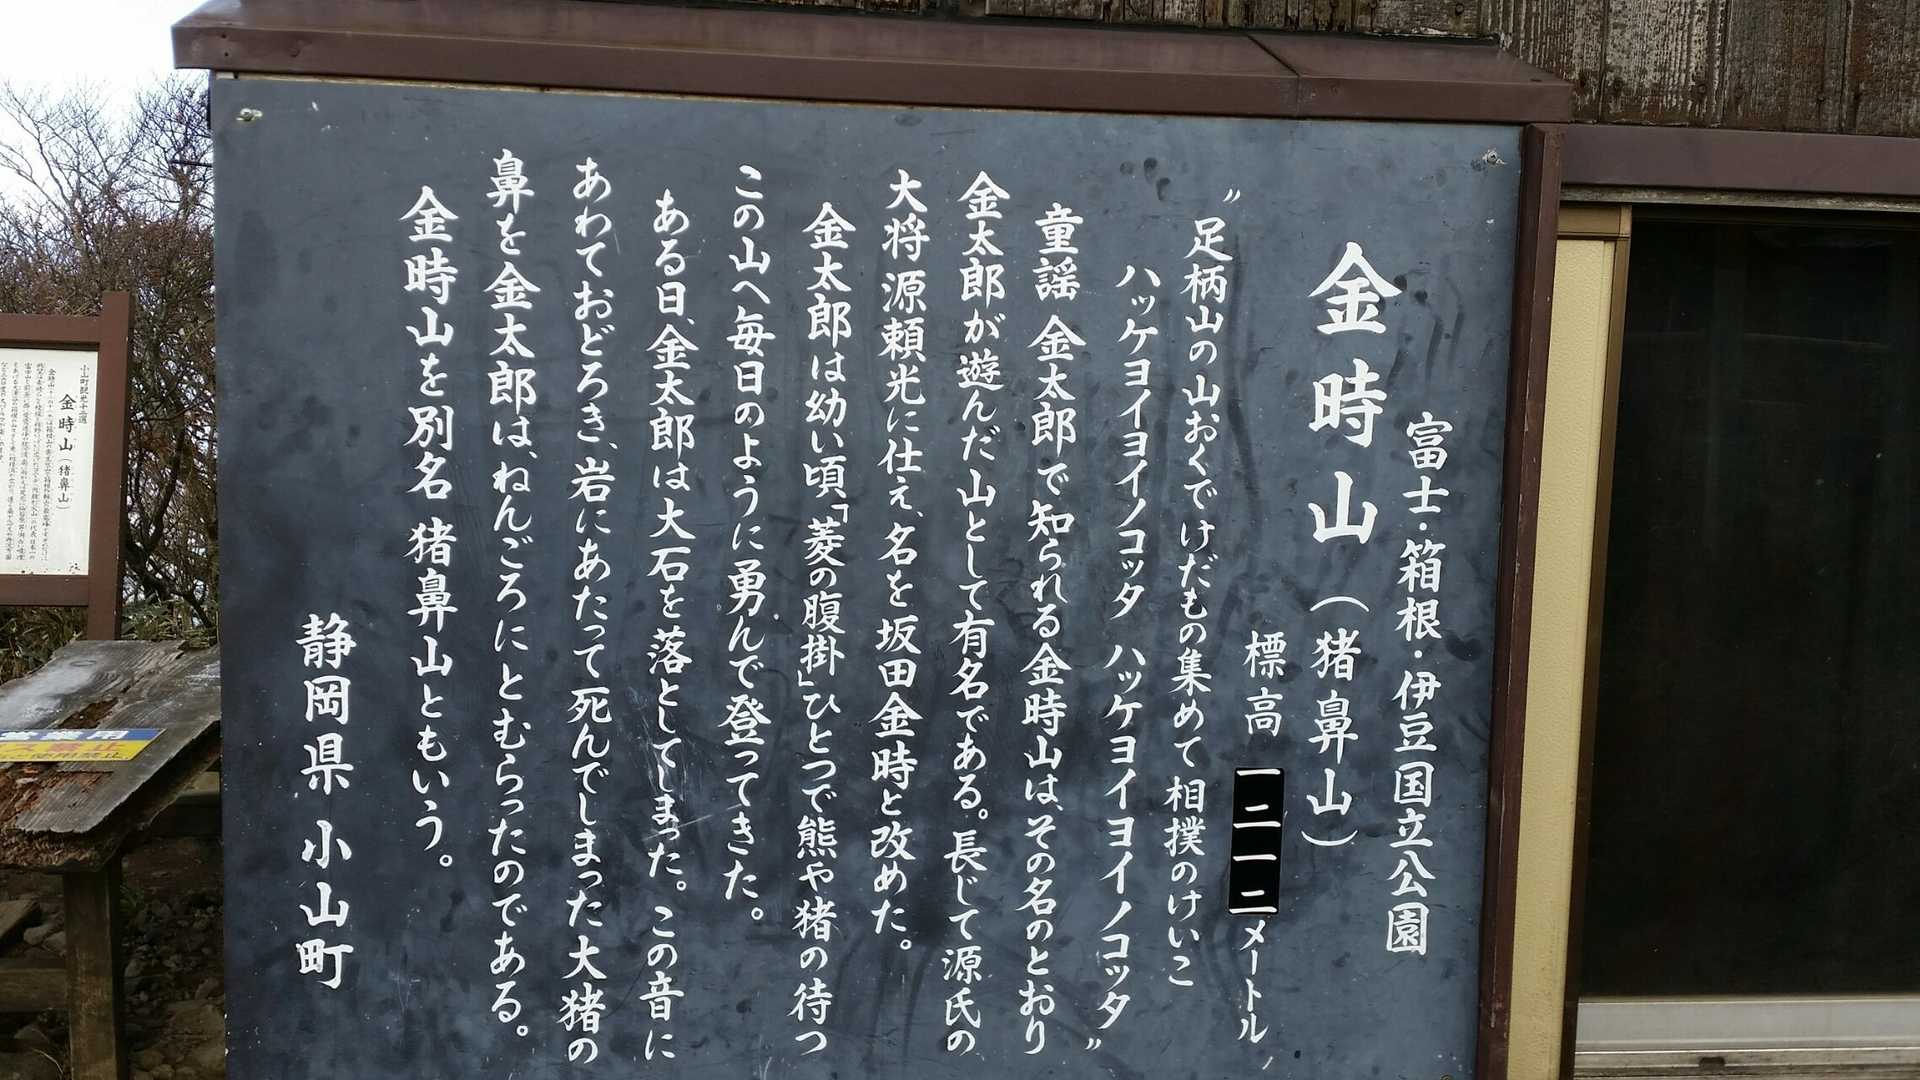 富士・箱根・伊豆国立公園
金時山（猪鼻山）
標高 一二一二メートル
〝足柄山の山おくでけだもの集めて相撲のけいこ
ハッケヨイヨイノコッタ ハッケヨイヨイノコッタ〟
童謡 金太郎で知られる金時山は、その名のとおり
金太郎が遊んだ山として有名である。長じて源氏の
大将源頼光に仕え、名を坂田金時と改めた。
金太郎は幼い頃「菱の腹掛」ひとつで熊や猪の待つ
この山へ毎日のように勇んで登ってきた。
ある日、金太郎は大石を落としてしまった。この音に
あわておどろき、岩にあたって死んでしまった大猪の
鼻を金太郎は、ねんごろにとむらったのである。
金時山を別名 猪鼻山ともいう。
静岡県 小山町
小山町観光十二選
金時山（猪鼻山）
営業用